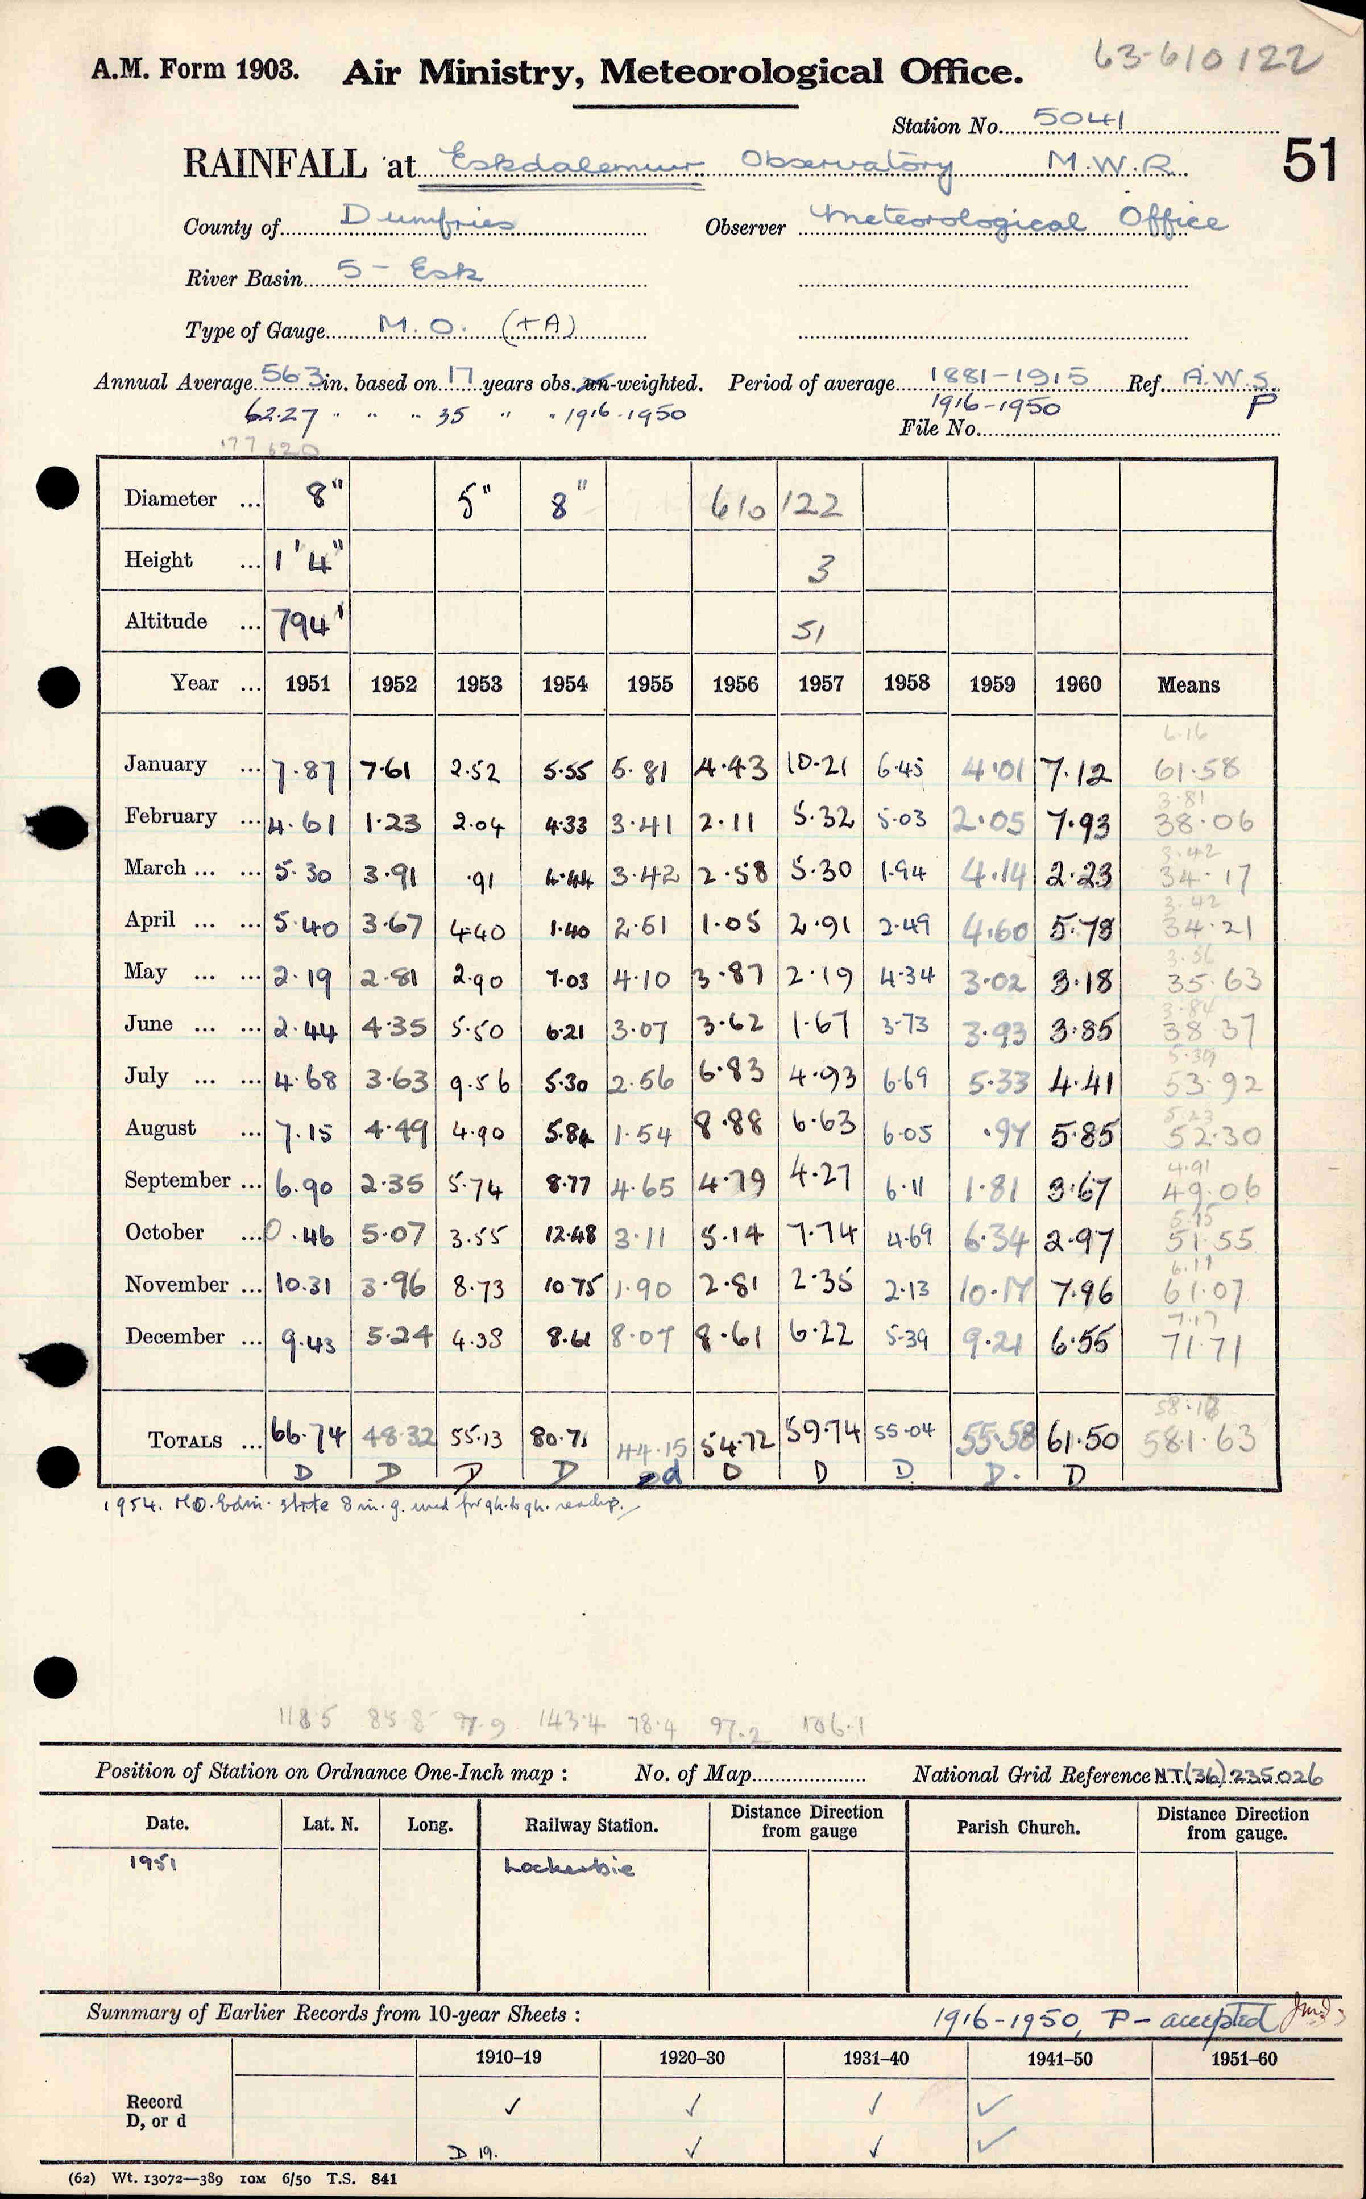 63-610122
A.M. Form 1903. Air Ministry, Meteorological Office.
Station No. 5041
51
RAINFALL at Eskdalemuir Observatory M.W.R.
County of Dumfries Observer Meteorological Office
River Basin 5 - Esk
Type of Gauge M.O. (+A)
Annual Average 56.3 in. based on 17 years obs. un-weighted. Period of average 1881-1915 Ref. A.W.S.
62.27 " " " 35 " " 1916-1950 1916-1950 P
File No.
Diameter ... 8" 5" 8" 610 122
Height ... 1'4" 3
Altitude ... 794' 51
Year ... 1951 1952 1953 1954 1955 1956 1957 1958 1959 1960 Means
6.16
January ... 7.87 7.61 2.52 5.55 5.81 4.43 10.21 6.45 4.01 7.12 61.58
3.81
February ... 4.61 1.23 2.04 4.33 3.41 2.11 5.32 5.03 2.05 7.93 38.06
3.42
March ... ... 5.30 3.91 .91 4.44 3.42 2.58 5.30 1.94 4.14 2.23 34.17
3.42
April ... ... 5.40 3.67 4.40 1.40 2.51 1.05 2.91 2.49 4.60 5.78 34.21
3.56
May ... ... 2.19 2.81 2.90 7.03 4.10 3.87 2.19 4.34 3.02 3.18 35.63
3.84
June ... ... 2.44 4.35 5.50 6.21 3.07 3.62 1.67 3.73 3.93 3.85 38.37
5.39
July ... ... 4.68 3.63 9.56 5.30 2.56 6.83 4.93 6.69 5.33 4.41 53.92
5.23
August ... 7.15 4.49 4.90 5.84 1.54 8.88 6.63 6.05 .97 5.85 52.30
4.91
September ... 6.90 2.35 5.74 8.77 4.65 4.79 4.27 6.11 1.81 3.67 49.06
5.15
October ... 0.46 5.07 3.55 12.48 3.11 5.14 7.74 4.69 6.34 2.97 51.55
6.11
November ... 10.31 3.96 8.73 10.75 1.90 2.81 2.35 2.13 10.17 7.96 61.07
7.17
December ... 9.43 5.24 4.38 8.61 8.07 8.61 6.22 5.39 9.21 6.55 71.71
58.16
TOTALS ... 66.74 48.32 55.13 80.71 44.15 54.72 59.74 55.04 55.58 61.50 581.63
D D D D d D D D. D. D
1954. M.O. Edin. state 8 in. g. used for 9h. to 9h. readgs.
118.5 85.8 97.9 143.4 78.4 97.2 106.1
Position of Station on Ordnance One-Inch map : No. of Map National Grid Reference NT(36) 235026
Date. Lat. N. Long. Railway Station. Distance Direction from gauge Parish Church. Distance Direction from gauge.
1951 Lockerbie
Summary of Earlier Records from 10-year Sheets : 1916-1950, P - accepted
1910-19 1920-30 1931-40 1941-50 1951-60
Record ✓ ✓ ✓ ✓
D, or d
D 19. ✓ ✓ ✓
(62) Wt. 13072—389 10M 6/50 T.S. 841